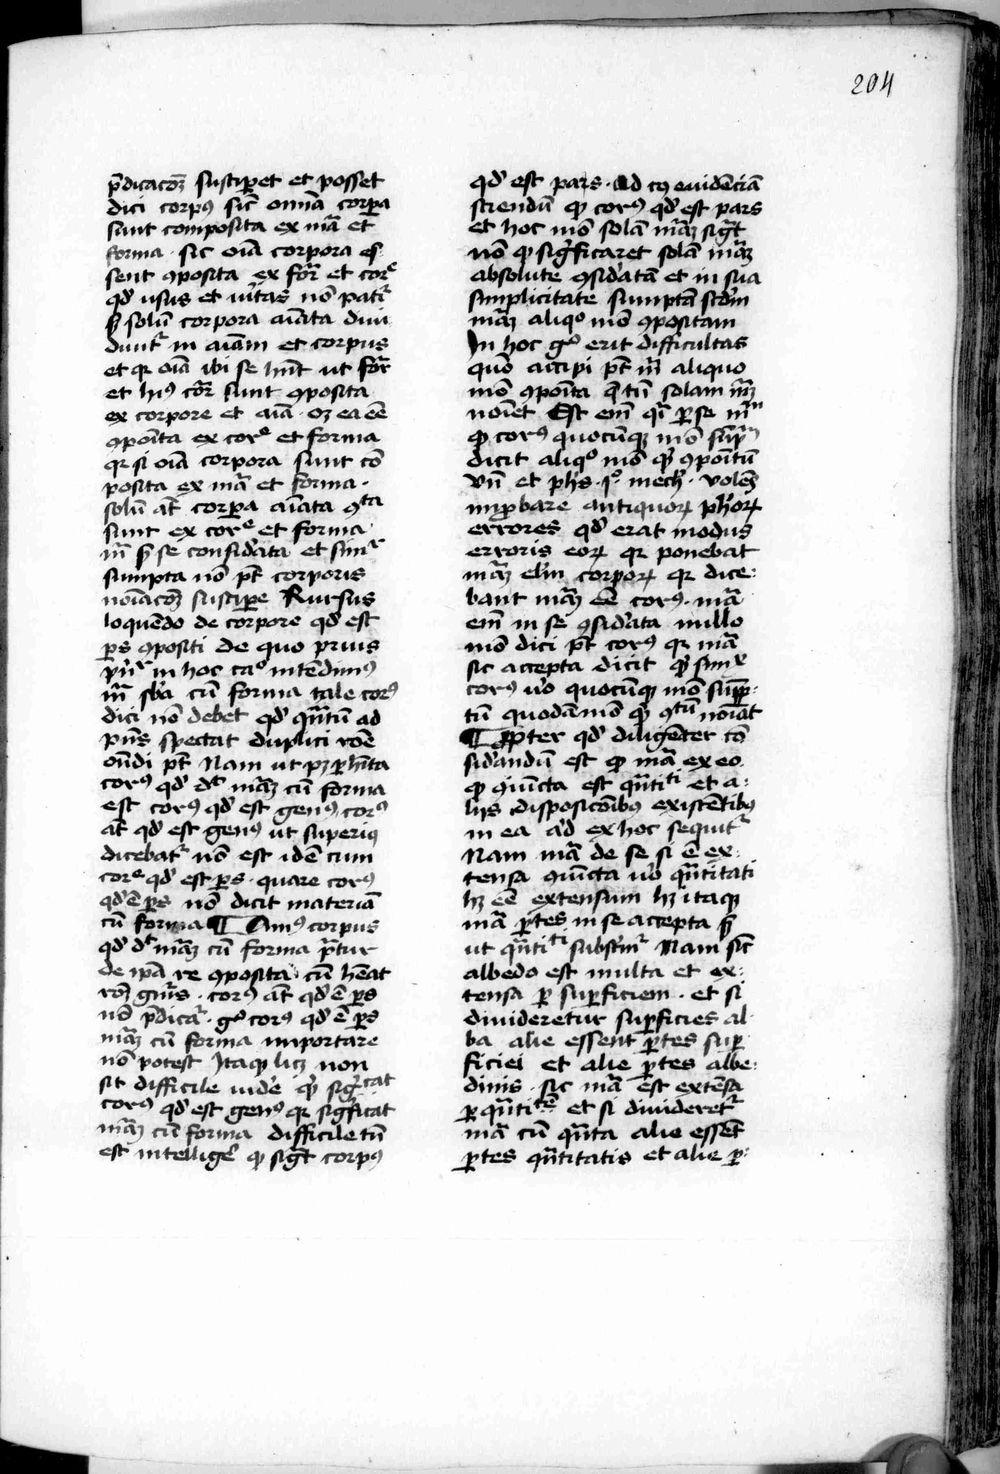 204
p̄dicacōꝫ susciꝑet et posset
dici corpꝰ sic̄ omīa corꝑa
sunt composita ex mā et
forma · sic oīa corpora es
sent ꝯposita ex for̄ et corᵉ
qd' usus et vītas nō patiᵗ
s̄ solū corpora aīata diui
duntᵗ in aīam et corpus
et qꝛ oīa ibi se hn̄t ut for̄
et hiꝰ cor̄ sunt ꝯposita
ex corpore et aīa · oꝫ ea eē
ꝯpoīta ex corᵉ et forma
qꝛ si oīa corpora sunt cō
posita ex mā et forma ·
solū at̄ corꝑa aīata ꝯᵗᵃ
sunt ex corᵉ et forma
m̄ s̄ se considāta et simᵗ
sumpta nō pt̄ corporis
noīacōꝫ susciꝑe Rursus
loquēdo de corpore qd' est
ꝑs ꝯpositi de quo prius
pn̄ᵗ in hoc caᵒ intēdimꝰ
m̄ sb'a cū forma tale corꝰ
dici nō debet qd' qn̄tū ad
pn̄s spectat duplici rōe
on̄di pt̄ Nam ut pꝫ ꝑ hīta
corꝰ qd' dt̄ māꝫ cū forma
est corꝰ qd' est genꝰ corꝰ
at̄ qd' est genꝰ ut superiꝰ
dicebatᵗ nō est idē cum
corᵉ qd' est ꝑs · quare corꝰ
qd' ē ꝑs nō dicit materiā
cū forma ¶ Ampꝰ corpus
qd' dt̄ māꝫ cū forma p̄tur
de ip̄a re ꝯposita cū hēat
rōꝫ gn̄is · corꝰ at̄ qd' ē ꝑs
nō p̄dicaᵗ · gᵒ corꝰ qd' ē ꝑs
māꝫ cū forma importare
nō potest Itaqꝫ licꝫ non
sit difficile vide' qꝫ sig'cat
corꝰ qd' est genꝰ qꝛ sig'ficat
māꝫ cū forma difficile tn̄
est intelligeʳ qꝫ sigt̄ corpꝰ
qd' est pars · Ad cꝰ euidēciā
sciendū qꝫ corꝰ qd' est pars
et hoc mō solā māꝫ sigt̄
nō qꝫ sig'ficaret solā māꝫ
absolute ꝯsid'atā et in sua
simplicitate sumptā sed'm
māꝫ aliqᵒ mō ꝯpositam
In hoc gᵒ erit difficultas
quō accipi pt̄ m̄ aliquo
mō ꝯpoīta q̄ tn̄ solam māꝫ
noīet Est em̄ qi ꝑ se mᵐ
qꝫ corꝰ quocūqꝫ mō sūpᵐ
dicit aliqᵒ mō qꝫ ꝯpoītū
vn̄ et ph's · iᵒ · mech' · volēs
improbare antiquoꝝ ph'oꝝ
errores qd' erat modus
erroris eoꝝ qꝛ ponebāt
māꝫ el'm corpoꝝ qꝛ dice
bant māꝫ eē corꝰ · mā
em̄ in se ꝯsid'ata nullo
mō dici pt̄ corꝰ qꝛ mā
sic accepta dicit qꝫ simˣ
corꝰ v'o quocūqꝫ mō sūpp
tū quodāmō qꝫ ꝯtū noīat
¶ Ꝓpter qd' diligēter cō
sid'andū est qꝫ mā ex eo
qꝫ ꝯiūcta est qn̄titi et a
lijs disposicōibꝰ existētibꝰ
in ea a'd ex hoc sequitᵗ
Nam mā de se si ē ex
tensa ꝯiūcta v'o qn̄titati
hꝫ eē extensum hꝫ itaqꝫ
mā ꝑtes in se accepta s̄
ut qn̄titi substīᵗ Nam sic̄
albedo est multa et ex
tensa ꝑ suꝑficiem · et si
diuideretur suꝑficies al
ba alie essent ꝑtes suꝑ
ficiei et alie ꝑtes albe
dinis · sic mā est extēsa
ꝑ qn̄titᵗᵉ et si divideretᵗ
mā cū qn̄ta alie essēt
ꝑtes qn̄titatis et alie ꝑ